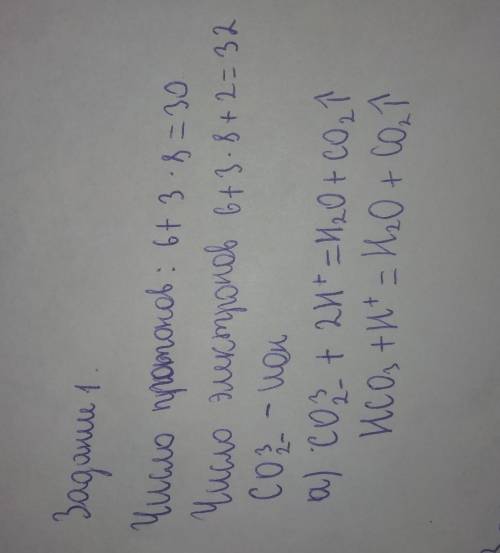 Задание 1.
Число протонов: 6+3·8=30
Число электронов 6+3·8+2=32
CO₂₋³ - ион
а) CO₂₋³ + 2H⁺ = H₂O + CO₂↑
HCO₃ + H⁺ = H₂O + CO₂↑